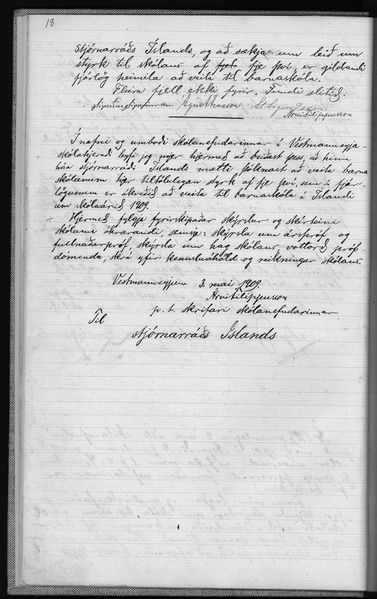 18
stjórnarráðs Íslands, og að sækja um leið um
styrk til skólans af fje því, er gildandi
fjárlög heimila að veita til barnaskóla.
Fleira fjell ekki fyrir. Fundi slitið.
Árni Filippusson
Í nafni og umboði skólanefndarinnar í Vestmannaeyja-
skólahjeraði leyfi jeg mjer hjermeð að beiðast þess, að hinu
háa stjórnarráði Íslands mætti þóknast að veita barna
skólanum hjer tiltölulegan styrk af fje því, sem í fjár-
lögunum er ákveðið að veita til barnaskóla á Íslandi
um skólaárið 1909.
Hjermeð fylgja fyrirskipaðar skýrslur og skírteini
skólans áhrærandi, semsje: skýrsla um árspróf og
fullnaðarpróf, skýrsla um hag skólans, vottorð próf
dómenda, skrá yfir kennsluáhöld og reikningur skólans.
Vestmannaeyjum 3. maí 1909.
Árni Filippusson
p. t. skrifari skólanefndarinnar
Til
stjórnarráðs Íslands